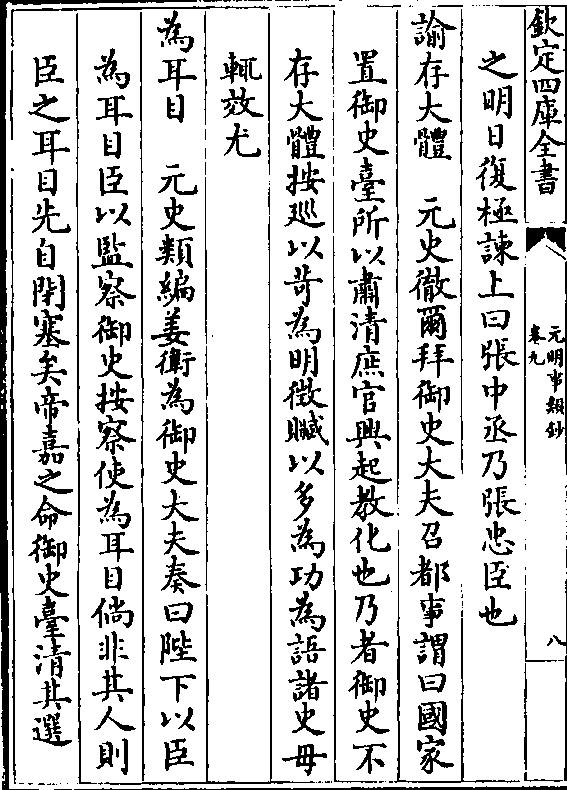 欽定四庫全書
元明事類鈔
卷九
八
之明日復極諫上曰張中丞乃張忠臣也
諭存大體　元史徹爾拜御史大夫召都事謂曰國家
置御史臺所以肅清庶官興起教化也乃者御史不
存大體按廵以苛為明徴贓以多為功為語諸史毋
輒效尤
為耳目　元史類編姜衛為御史大夫奏曰陛下以臣
為耳目臣以監察御史按察使為耳目倘非其人則
臣之耳目先自閉塞矣帝嘉之命御史臺清其選